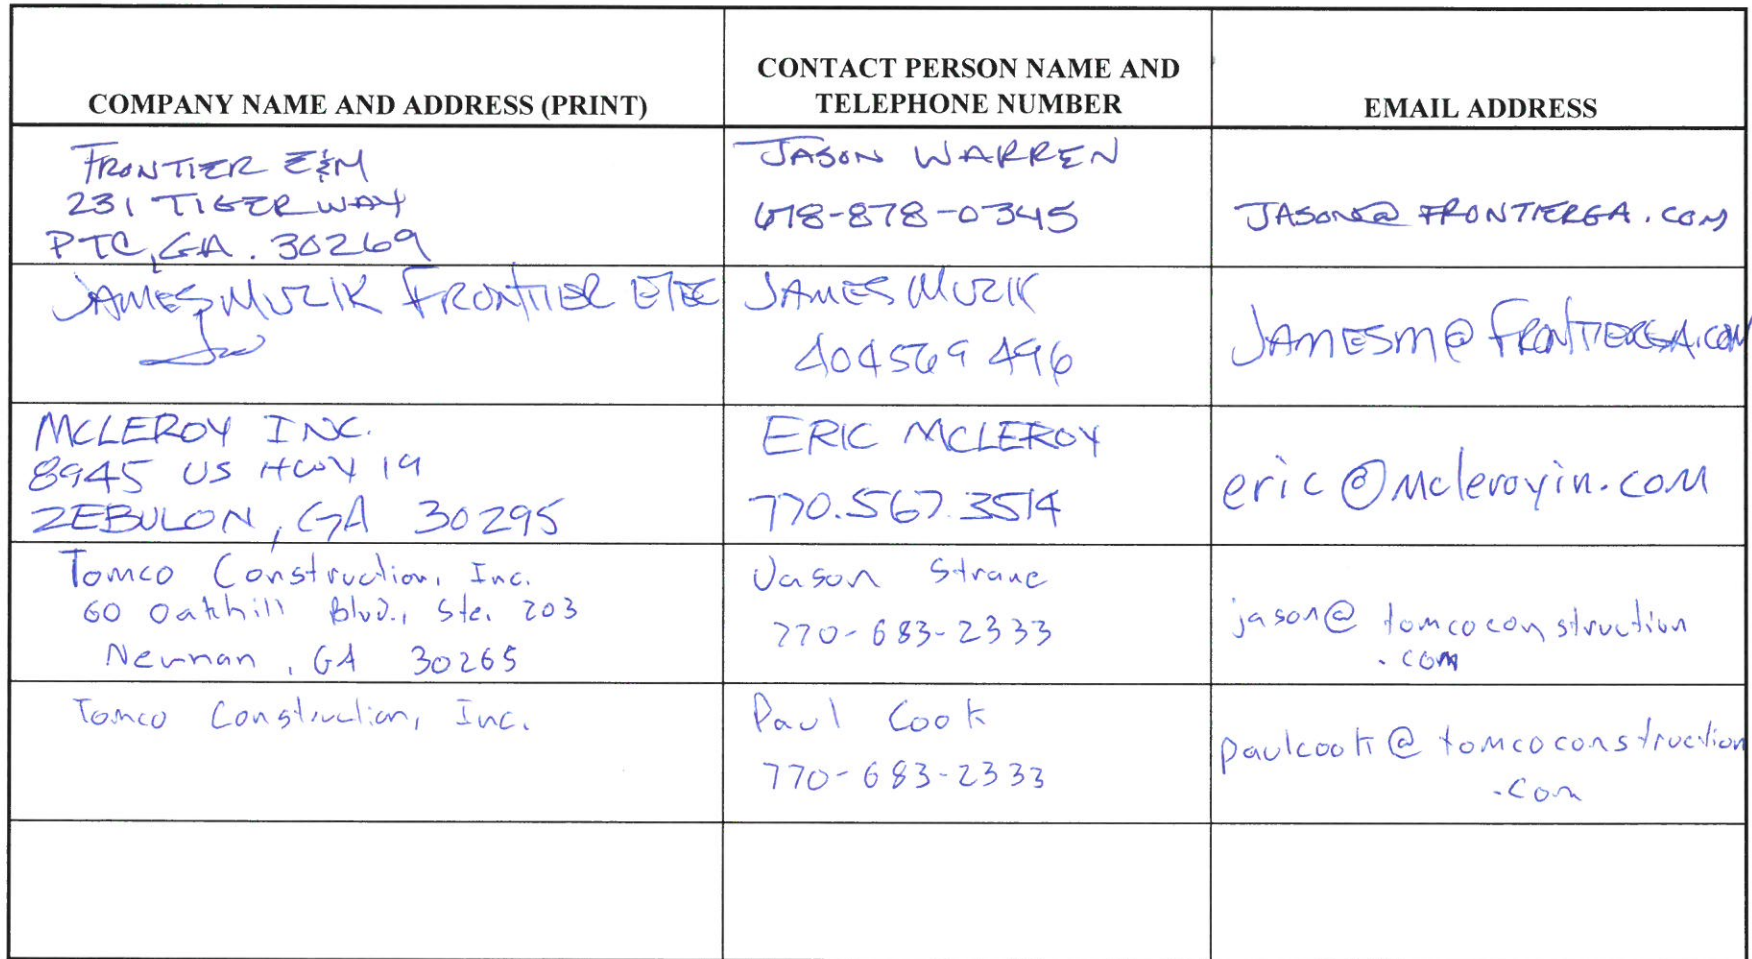 COMPANY NAME AND ADDRESS (PRINT)
CONTACT PERSON NAME AND
TELEPHONE NUMBER
EMAIL ADDRESS
FRONTIER E&M
231 TIGER WAY
PTC, GA. 30269
JASON WARREN
678-878-0345
JASON@FRONTIERGA.COM
JAMES MUZIK FRONTIER
JAMES MUZIK
404569 496
JAMESM@FRONTIERGA.COM
MCLEROY INC.
8945 US HWY 19
ZEBULON, GA 30295
ERIC MCLEROY
770.567.3514
eric@mcleroyin.com
Tomco Construction, Inc.
60 Oakhill Blvd., Ste. 203
Newnan, GA 30265
Jason
770-683-2333
jason@tomcoconstruction
.com
Tomco Construction, Inc.
Paul Cook
770-683-2333
paulcook@tomcoconstruction
.com